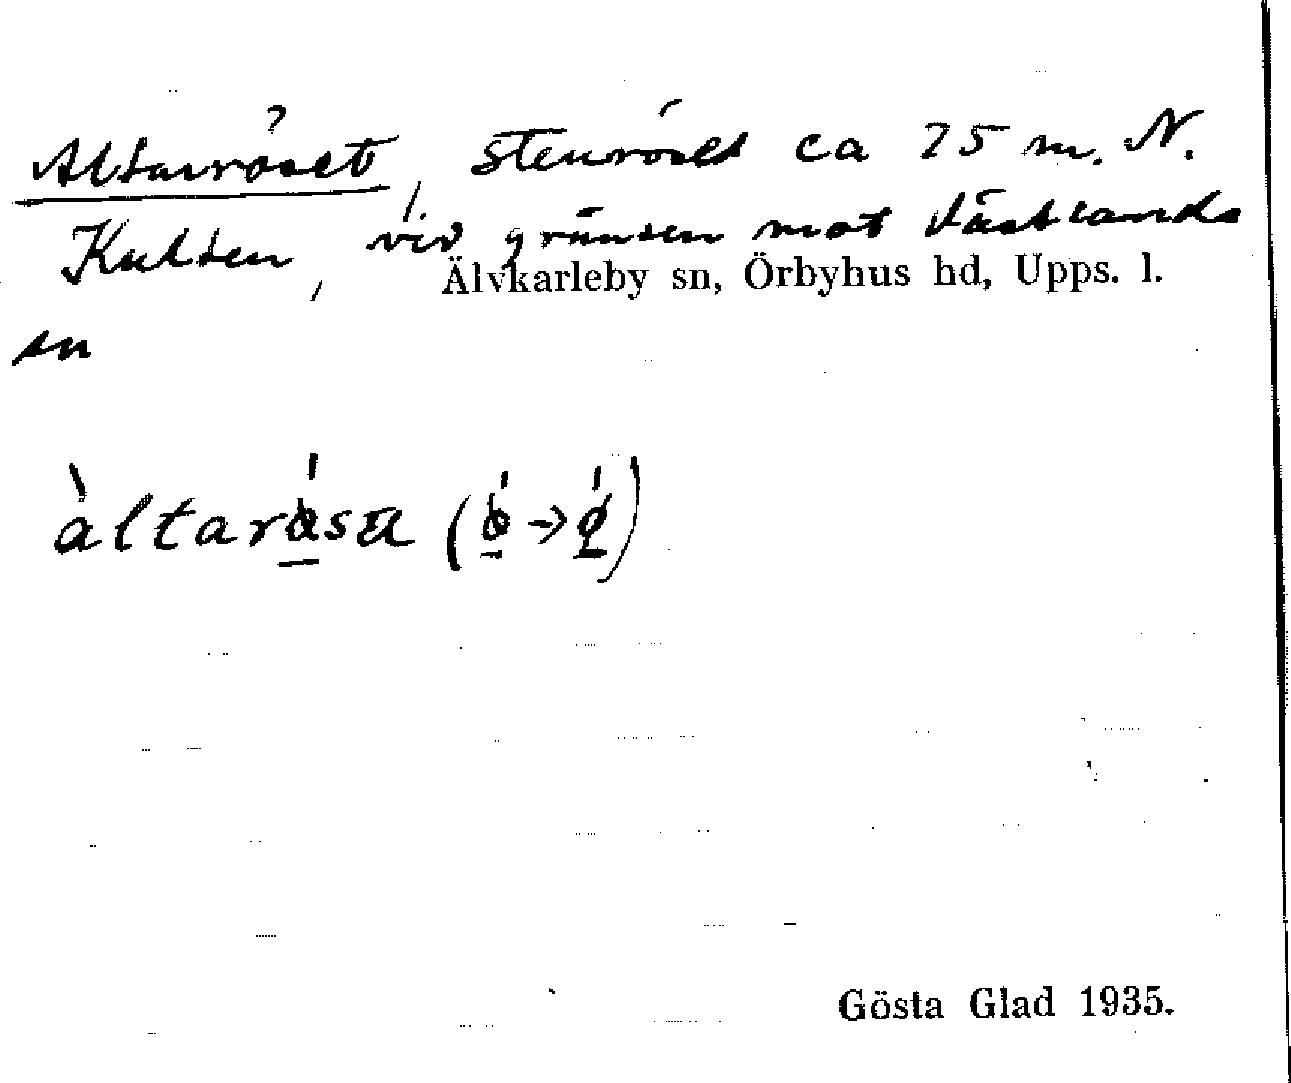 Altarröset, stenröset ca 75 m. N.
Kulten, vid gränsen mot Västlands
Älvkarleby sn, Örbyhus hd, Upps. l.
sn
Gösta Glad 1935.